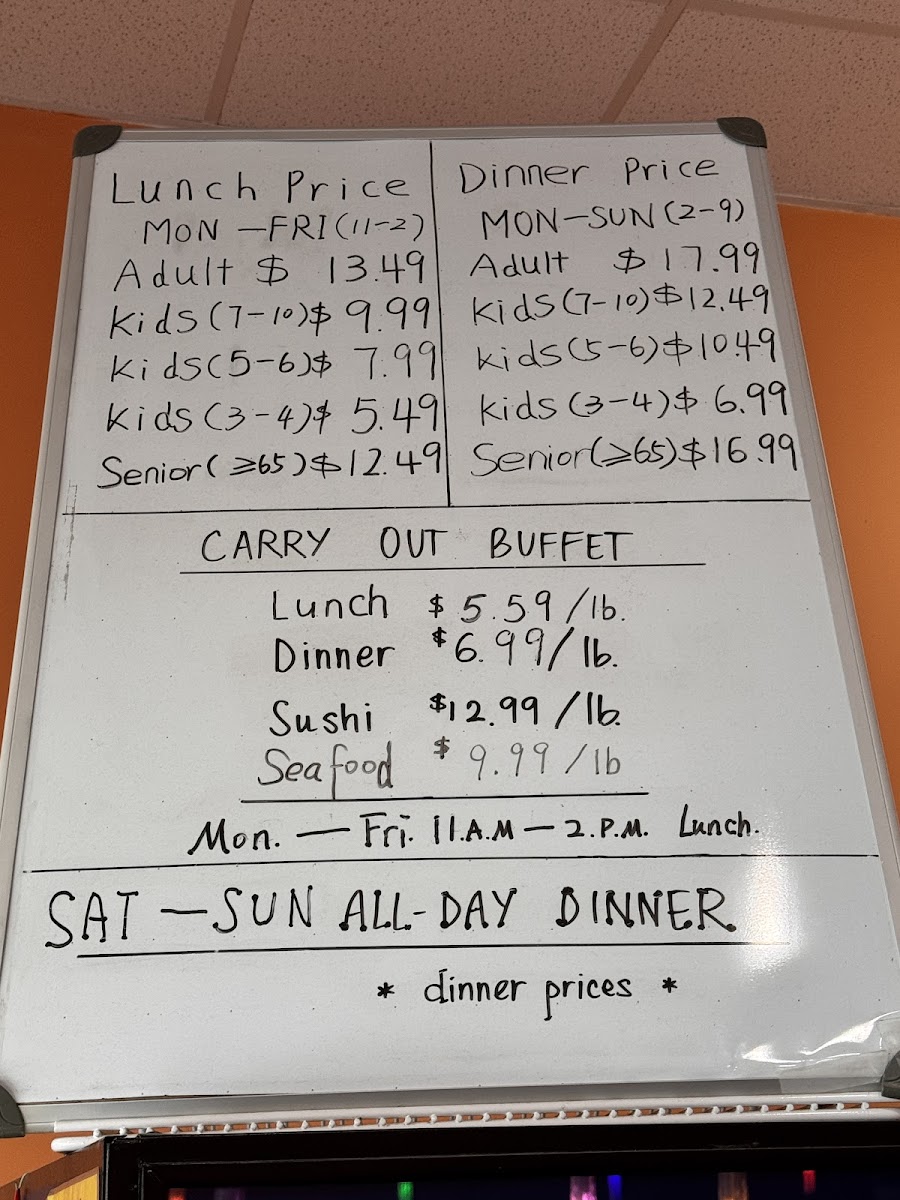 Lunch Price
MON - FRI (11-2)
Adult $ 13.49
Kids (7-10) $ 9.99
Kids (5-6) $ 7.99
Kids (3-4) $ 5.49
Senior (≥65) $ 12.49
Dinner Price
MON - SUN (2-9)
Adult $ 17.99
Kids (7-10) $ 12.49
Kids (5-6) $ 10.49
Kids (3-4) $ 6.99
Senior (≥65) $ 16.99
CARRY OUT BUFFET
Lunch $ 5.59 / lb.
Dinner $ 6.99 / lb.
Sushi $ 12.99 / lb.
Seafood $ 9.99 / lb
Mon. — Fri. 11.A.M — 2.P.M. Lunch.
SAT — SUN ALL-DAY DINNER
* dinner prices *